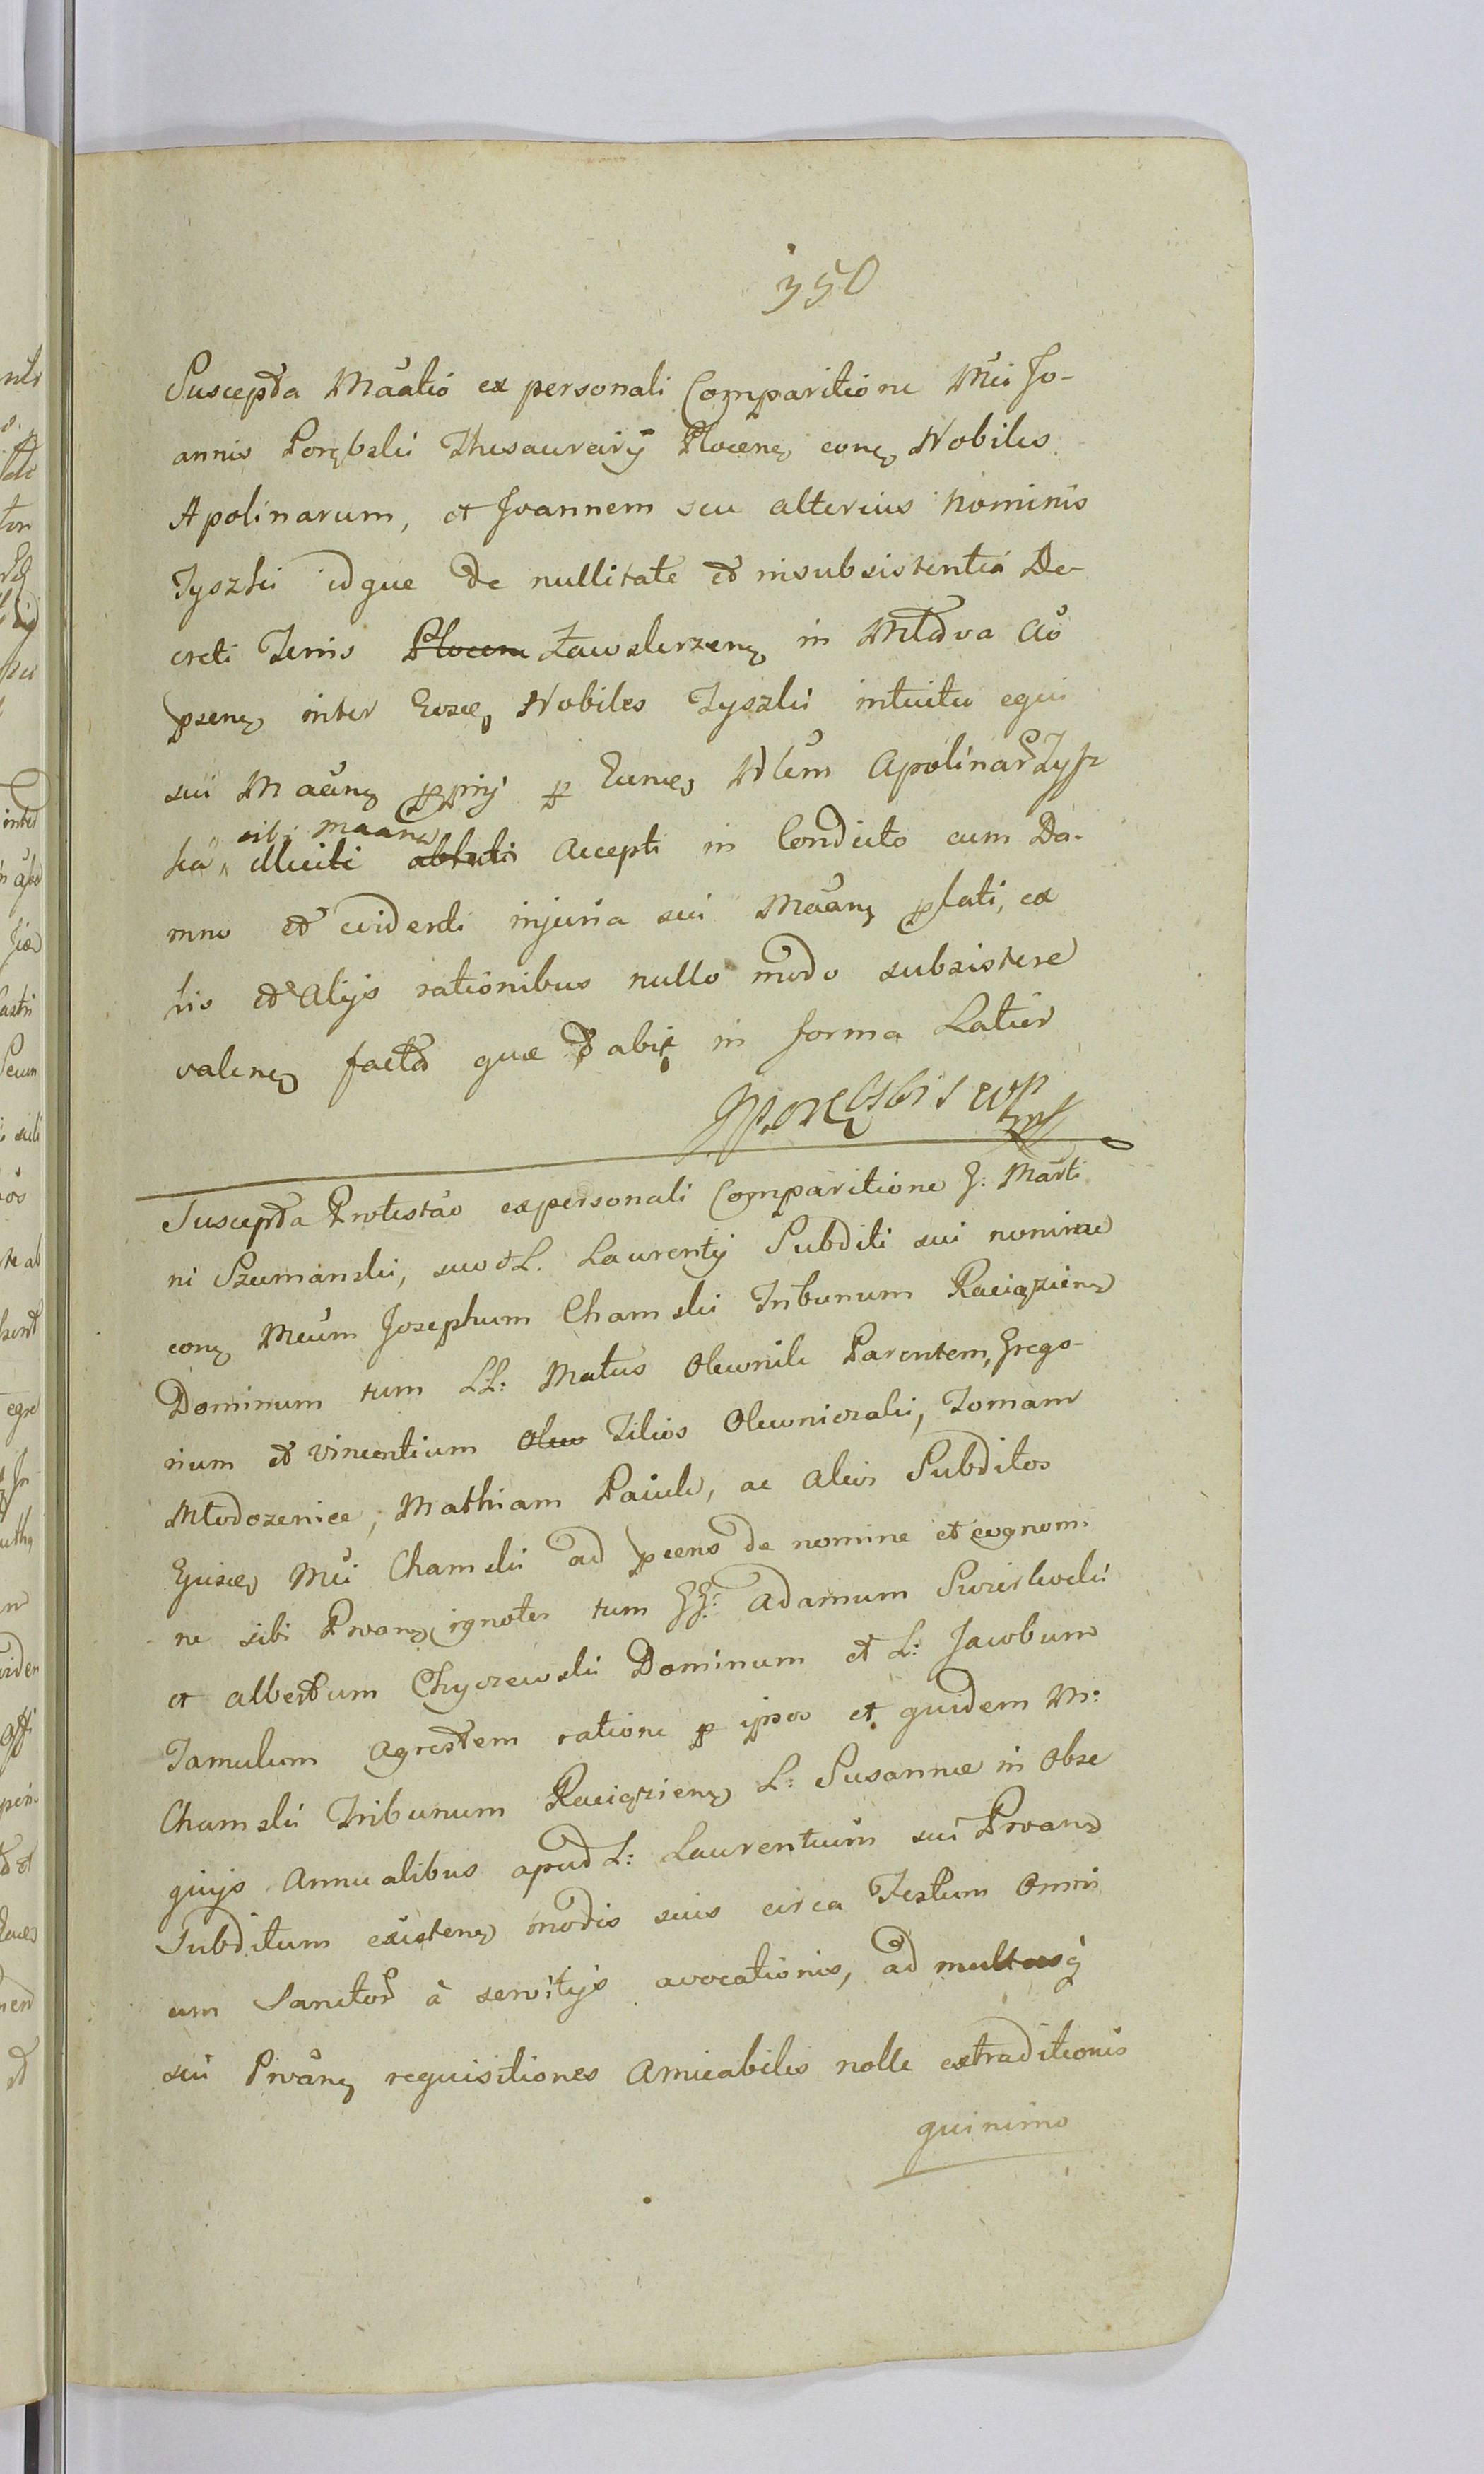 350
Suscepta Maãtio ex personali Comparitione Mci Jo-
annis Porębski Thesaurarij Plocen contra Nobiles
Apolinarum, et Joannem seu alterius nominis
Tyszki idque de nullitate et insubsistentia De-
creti Terris Plocen Zawskrzen in Mława Ao
psen inter Eosd Nobiles Tyszki intuitu equi
sui Maãn pprij p Eund Nlem Apolinar Tysz
ka, illiciti ablati accepti in Conducto cum Da-
sibi maan
mno et evidenti injuria sui Maãn pfati, ex
his et Alijs rationibus nullo modo subsistere
valen facta quæ abie in forma Latior
JPorębski s w p
Suscepta Protestão ex personali Comparitione G: Marti
ni Szumanski, suo et L. Laurentij Subditi sui nomine
con Mcum Josephum Chamski Tribunum Raciązien
Dominum tum LL: Matus Olewnik Parentem, Grego-
rium et Vincentium Olew Filios Olewniczaki, Tomam
Młodozeniec, Mathiam Paiuk, ac alios Subditos
Ejusd Mci Chamski ad psens de nomine et cognomi
ne sibi Proan ignotos tum GG: Adamum Swierkocki
et Albertum Chyczewski Dominum et L: Jacobum
Famulum agrestem ratione p ipsos et quidem M:
Chamski Tribunum Raciązien L: Susannæ in Obse
quijs Annualibus apud L: Laurentium sui Proan
Subditum existen modis suis circa Festum Omni
um Sanctor à servitijs avocationis, ad multasq
sui Proan requisitiones Amicabiles nolle extraditionis
quinimo